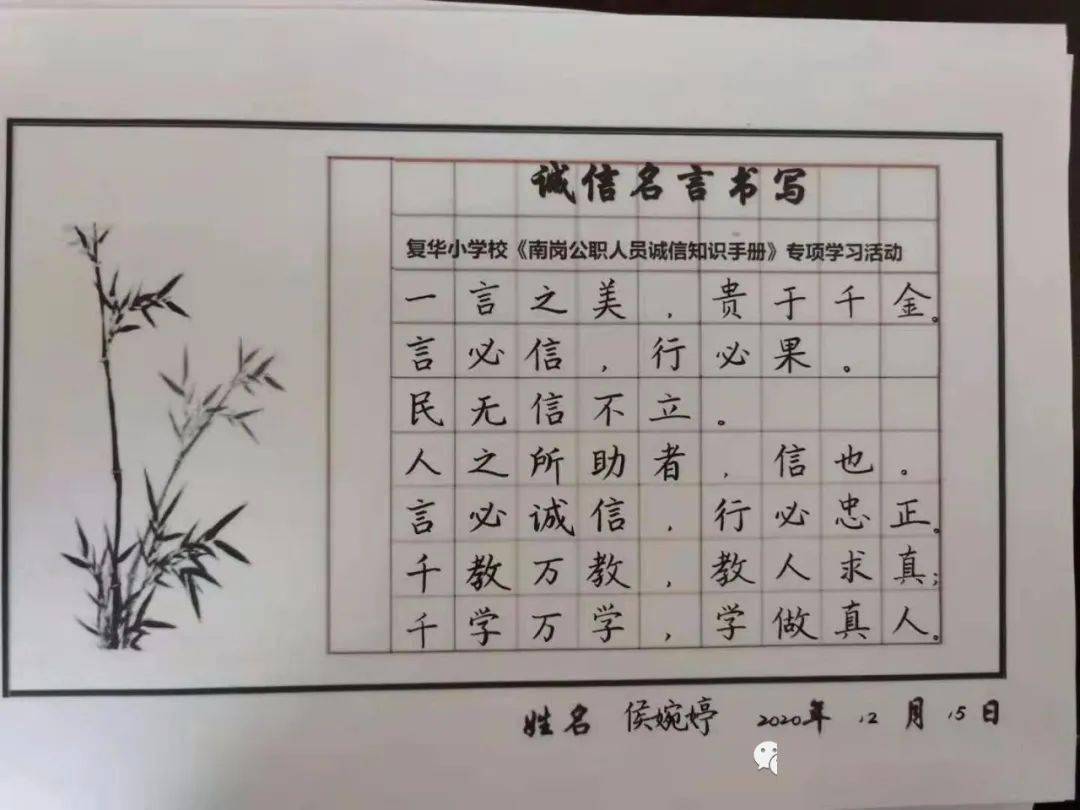 诚信名言书写
复华小学校《南岗公职人员诚信知识手册》专项学习活动
一言之美，贵于千金。
言必信，行必果。
民无信不立。
人之所助者，信也。
言必诚信，行必忠正。
千教万教，教人求真；
千学万学，学做真人。
姓名 侯婉婷 2020年 12 月 15 日